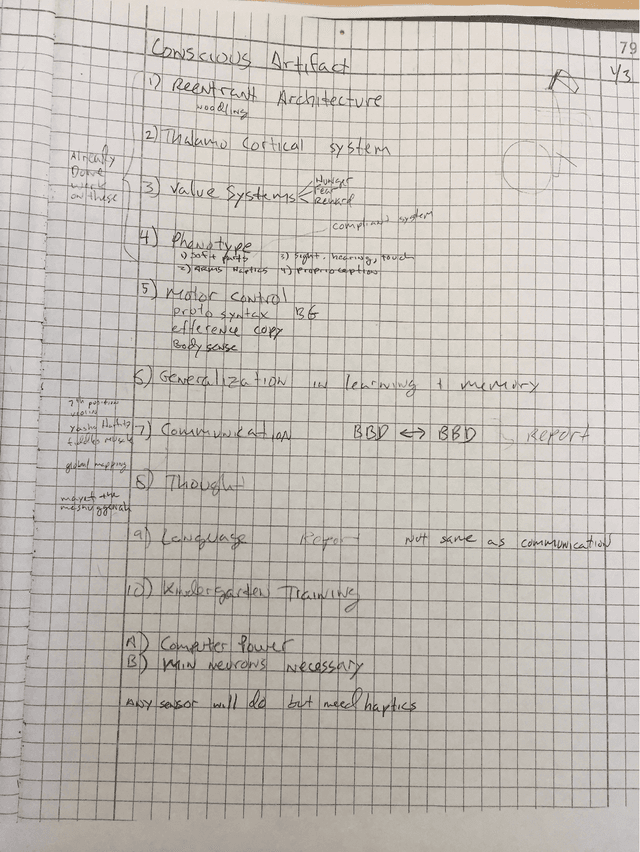 79
1/3
Conscious Artifact
1) Reentrant Architecture
woodling
2) Thalamo Cortical system
Already
Done
work
on these
3) Value Systems
Hunger
Fear
Reward
compliant system
4) Phenotype
1) soft parts 3) sight, hearing, touch
2) Arms Haptics 4) proprioception
5) Motor Control
proto syntax BG
efference copy
Body sense
6) Generalization in learning + memory
7th position
violin
Yasha Heifitz
fiddles music
7) Communication BBD ↔ BBD Report
global mapping
8) Thought
mayet the
meshuggenah
9) Language Report Not same as communication
10) Kindergarden Training
A) Computer Power
B) Min neurons necessary
Any sensor will do but need haptics